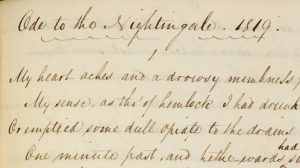 Ode to the Nightingale. 1819.
1
My heart aches and a drowsy numbness p
My sense, as tho' of hemlock I had drunk
Or emptied some dull opiate to the drains
One minute past, and Lethe-wards
had